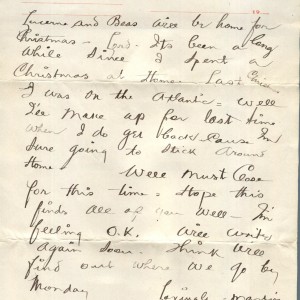 Lucerne and Beas will be home for
Christmas - Lord - Its been a long
while since I spent a
Christmas at Home - Last
I was on the Atlantic - well
I'll make up for lost time
when I do get back cause I'm
sure going to stick around
Home
Well must close
for this time - Hope this
finds all of you well - I'm
feeling O.K. will write
again soon - Think will
find out where we go by
Monday
Lovingly -